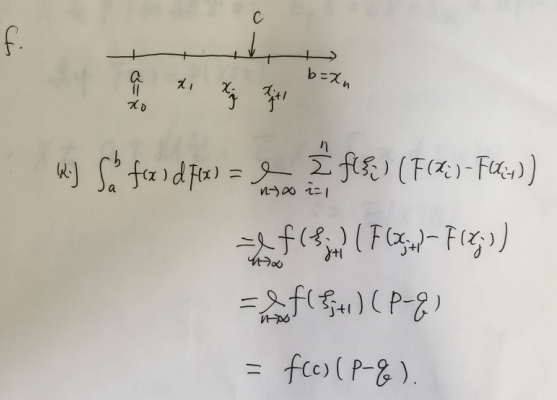 f.
c
a x₁ xⱼ xⱼ₊₁ b=xₙ
‖
x₀
則 ∫ₐᵇ f(x) dF(x) = lim_{n→∞} Σ_{i=1}^{n} f(ξᵢ) (F(xᵢ)-F(xᵢ₋₁))
= lim_{n→∞} f(ξⱼ₊₁) (F(xⱼ₊₁)-F(xⱼ))
= lim_{n→∞} f(ξⱼ₊₁) (p-q)
= f(c) (p-q).